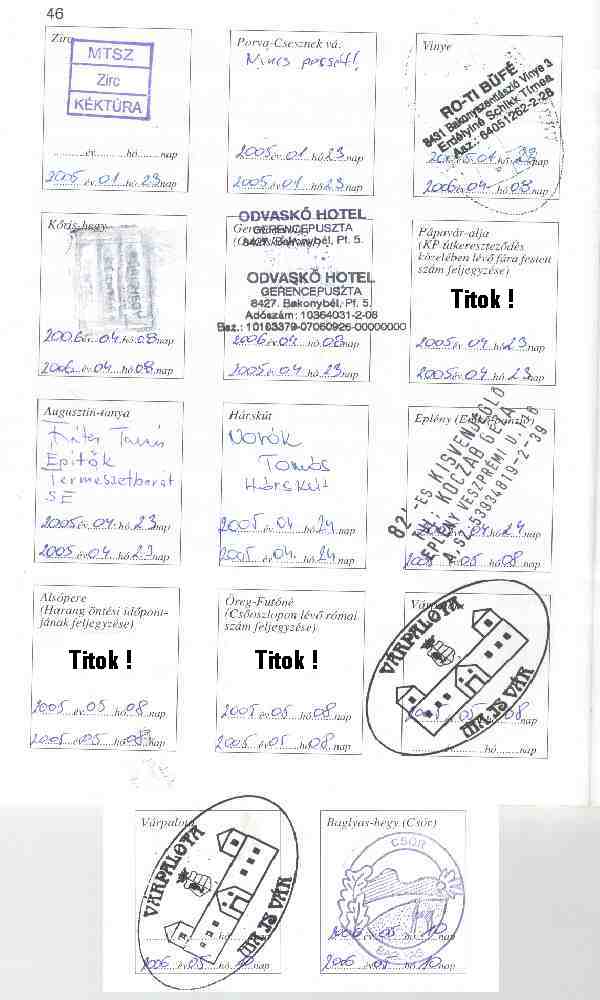 46
Zirc
MTSZ
Zirc
KÉKTÚRA
..........év..........hó.......nap
2005 év 01 hó 23 nap
Porva-Csesznek vá.
Nincs pecsét!
2005 év 01 hó 23 nap
2005 év 01 hó 23 nap
Vinye
RO-TI BÜFÉ
8431 Bakonyszentlászló Vinye 3
Erdélyiné Schikk Tímea
Asz.: 64051262-2-28
2005 01 hó 23 nap
2006 év 04 hó 08 nap
Kőris-hegy
2006 év 04 hó 08 nap
2006 év 04 hó 08 nap
ODVASKŐ HOTEL
GERENCEPUSZTA
8427. Bakonybél, Pf. 5.
ODVASKŐ HOTEL
GERENCEPUSZTA
8427. Bakonybél, Pf. 5.
Adószám: 10364031-2-08
Bsz.: 10103379-07060926-00000000
2006 év 04 hó 08 nap
2005 év 04 hó 23 nap
Pápavár-alja
(KP útkereszteződés
közelében lévő fára festett
szám feljegyzése)
Titok !
2005 év 04 hó 23 nap
2005 év 04 hó 23 nap
Augusztin-tanya
Tanus
Építők
Természetbarát
SE
2005 év 04 hó 23 nap
2005 év 04 hó 23 nap
Hárskút
Novák
Tamás
Hárskút
2005 év 04 hó 24 nap
2005 év 04 hó 24 nap
Eplény
82 -ES KISVENDÉGLŐ
KOCZAB GÉZA
EPLÉNY VESZPRÉMI U.
A.SZ. 53934819-2-39
04 hó 24 nap
2005 év 05 hó 08 nap
Alsópere
(Harang öntési időpont-
jának feljegyzése)
Titok !
2005 év 05 hó 08 nap
2005 év 05 hó 08 nap
Öreg-Futóné
(Csőoszlopon lévő római
szám feljegyzése)
Titok !
2005 év 05 hó 08 nap
2005 év 05 hó 08 nap
Várpalota
VÁRPALOTA
VÁR
2005 év 05 hó 08 nap
..........év..........hó.......nap
Várpalota
VÁRPALOTA
VÁR
2006 év 05 hó 10 nap
Baglyas-hegy (Csór)
CSÓR
2006 év 05 hó 10 nap
2006 év 05 hó 10 nap